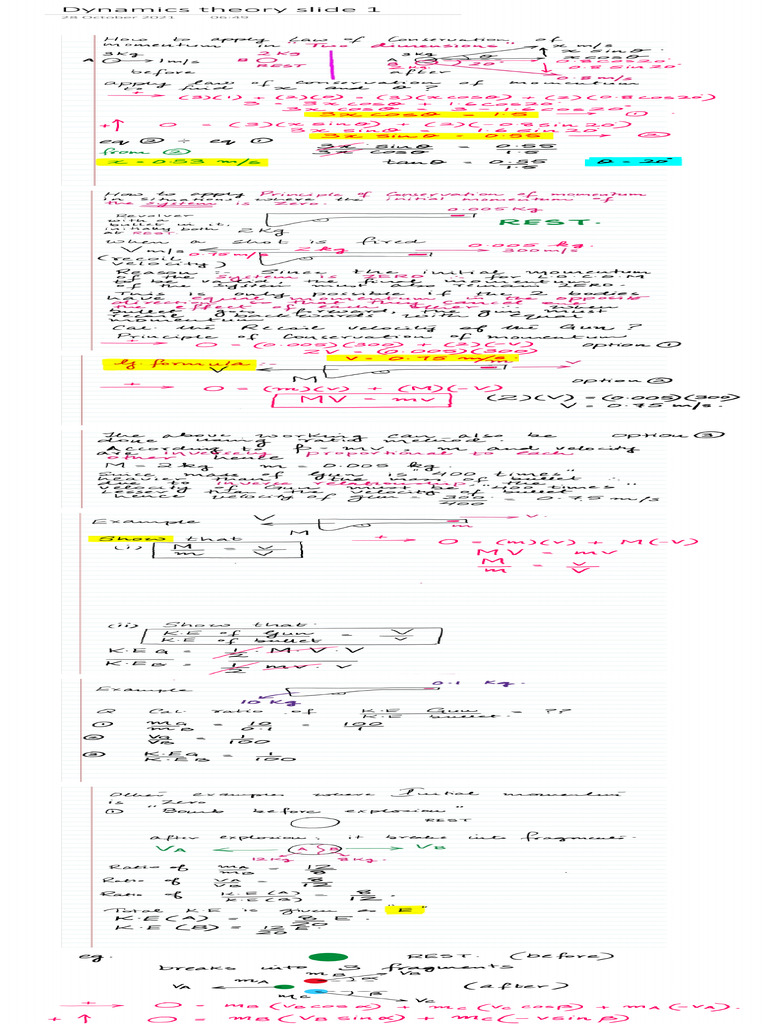 Dynamics theory slide 1
28 October 2021 06:49
How to apply Law of Conservation of
momentum in "Two dimensions" of
3kg 2kg 3kg x m/s
x sinθ
A → 1m/s B A θ x cosθ
REST 2kg 20° 0.8cos20°
0.8 sin 20°
before after 0.8 m/s
apply law of conservation of momentum
to find x and θ ?
+ → (3)(1) + (2)(0) = (3)(x cosθ) + (2)(0.8cos20)
3 = 3x cosθ + 1.6cos20°
3x cosθ = 3 - 1.6cos20°
3x cosθ = 1.5 → ①
+↑ 0 = (3)(x sinθ) + (2)(-0.8 sin 20)
3x sinθ = 1.6 sin 20
3x sinθ = 0.55 → ②
eq ② ÷ eq ① 3x sinθ / 3x cosθ = 0.55 / 1.5
from ②
x = 0.53 m/s tanθ = 0.55 / 1.5 θ = 20°
How to apply Principle of Conservation of momentum
in situations where the initial momentum of
the system is zero.
0.005 kg
Revolver
with a
bullet in it,
initially both
at REST. 2kg REST.
When a shot is fired
V m/s 2kg 0.005 kg.
0.75 m/s 300m/s
(recoil
velocity)
Reason :- Since the initial momentum
of the system is ZERO :- for L.O.C.M
to be valid the final momentum
of the system must also remain ZERO.
This is only possible if the 2 bodies
have equal momentum in the opposite
bullet goes forward, the gun must
recoil backward with equal
momentum
Cal. the Recoil velocity of the Gun ?
Principle of Conservation of momentum
+ → 0 = (0.005)(300) + (2)(-V) option ①
2V = (0.005)(300)
V = 0.75 m/s
By formula :- V v
M option ②
+ → 0 = (m)(v) + (M)(-V)
MV = mv (2)(V) = (0.005)(300)
V = 0.75 m/s.
The above working can also be option ③
done using ratio method.
According to P = mv :- m and velocity
are inversely proportional to each
other hence
M = 2kg m = 0.005 kg
Since mass of Gun is "400 times"
heavier than the mass of bullet :-
due to inverse relationship the
velocity of Gun must be "400 times"
lesser than the velocity of bullet
hence velocity of gun = 300 / 400 = 0.75 m/s
Example V v
M m
Show that
(i) M / m = v / V + → 0 = (m)(v) + M(-V)
MV = mv
M / m = v / V
(ii) Show that.
K.E of Gun / K.E of bullet = V / v
K.E G / K.E B = 1/2 . M V . V / 1/2 m v . v
Example 0.1 kg.
10 kg
Q Cal ratio of K.E Gun / K.E bullet = ??
① mG / mB = 10 / 0.1 = 100 / 1
② VG / VB = 1 / 100
③ K.E G / K.E B = 1 / 100
Other examples where Initial momentum
is Zero
① "Bomb before explosion"
REST
after explosion, it breaks into fragments.
VA A B VB
12kg 8kg.
Ratio of mA / mB = 12 / 8
Ratio of VA / VB = 8 / 12
Ratio of K.E (A) / K.E (B) = 8 / 12 .
Total K.E is given as "E"
K.E (A) = 8 / 20 E.
K.E (B) = 12 / 20 E.
eg. REST. (before)
breaks into 3 fragments
mB VB
VA mA α (after)
mC β VC
+ → 0 = mB(VB cosα) + mC(VC cosβ) + mA(-VA).
+ ↑ 0 = mB(VB sinα) + mC(-V sinβ)